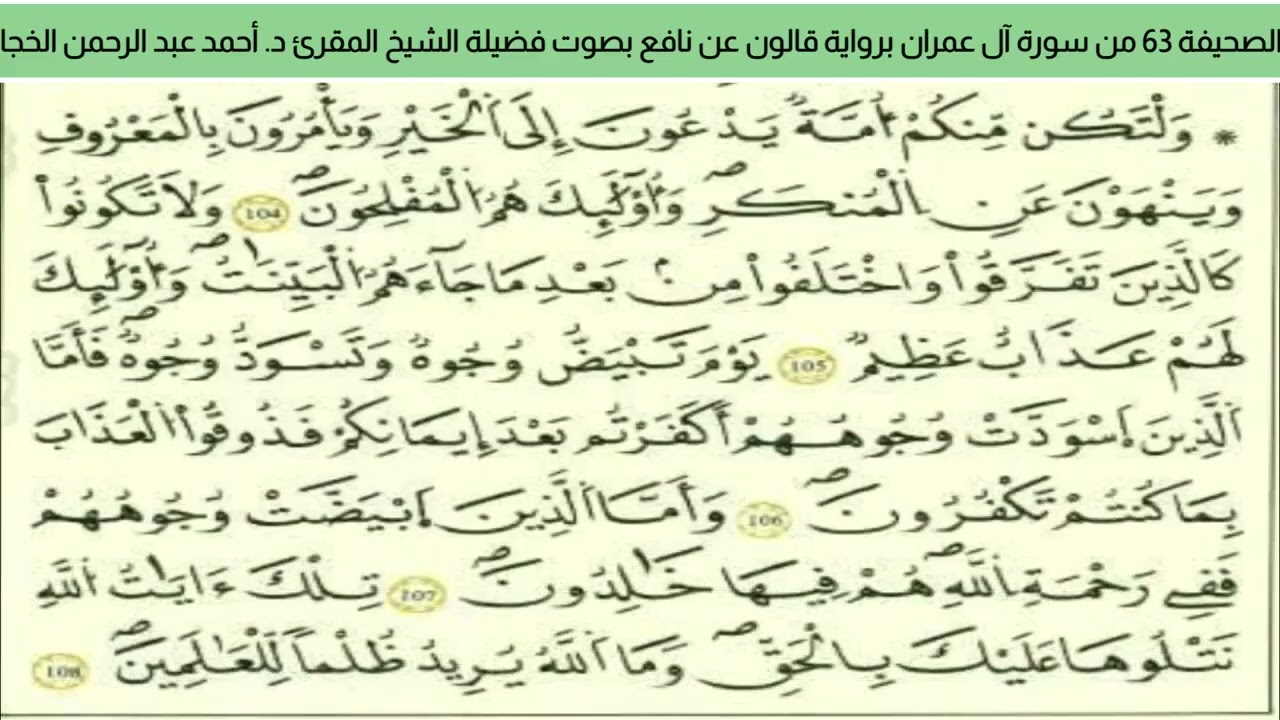 الصحيفة 63 من سورة آل عمران برواية قالون عن نافع بصوت فضيلة الشيخ المقرئ د. أحمد عبد الرحمن الخجا
* وَلْتَكُن مِّنكُمُۥٓ أُمَّةٌ يَدْعُونَ إِلَى اَ۬لْخَيْرِ وَيَأْمُرُونَ بِالْمَعْرُوفِ
وَيَنْهَوْنَ عَنِ اِ۬لْمُنكَرِۖ وَأُوْلَٰٓئِكَ هُمُ اُ۬لْمُفْلِحُونَۖ 104 وَلَا تَكُونُواْ
كَالذِينَ تَفَرَّقُواْ وَاخْتَلَفُواْ مِنۢ بَعْدِ مَا جَآءَهُمُ اُ۬لْبَيِّنَٰتُۖ وَأُوْلَٰٓئِكَ
لَهُمْ عَذَابٌ عَظِيمٌ 105 يَوْمَ تَبْيَضُّ وُجُوهٌ وَتَسْوَدُّ وُجُوهٌۖ فَأَمَّا
اَ۬لذِينَ اَ۪سْوَدَّتْ وُجُوهُهُمْ أَكَفَرْتُم بَعْدَ إِيمَٰنِكُمْ فَذُوقُواْ اُ۬لْعَذَابَ
بِمَا كُنتُمْ تَكْفُرُونَۖ 106 وَأَمَّا اَ۬لذِينَ اَ۪بْيَضَّتْ وُجُوهُهُمْ
فَفِے رَحْمَةِ اِ۬للَّهِۖ هُمْ فِيهَا خَٰلِدُونَۖ 107 تِلْكَ ءَايَٰتُ اُ۬للَّهِ
نَتْلُوهَا عَلَيْكَ بِالْحَقِّۖ وَمَا اَ۬للَّهُ يُرِيدُ ظُلْماً لِّلْعَٰلَمِينَۖ 108